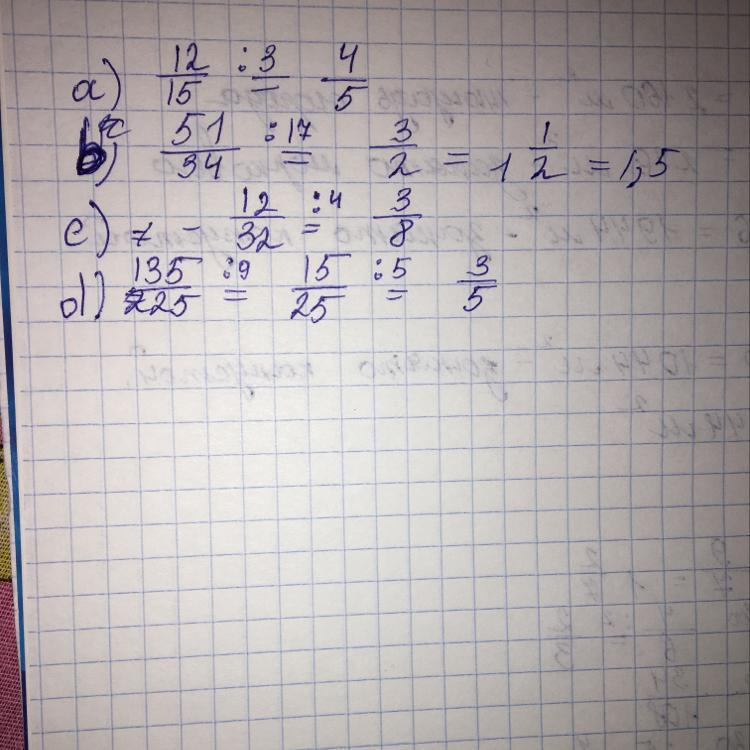 a) 12/15 :3 = 4/5
b) 51/34 :17 = 3/2 = 1 1/2 = 1,5
c) 7 - 12/32 :4 = 3/8
d) 135/225 :9 = 15/25 :5 = 3/5